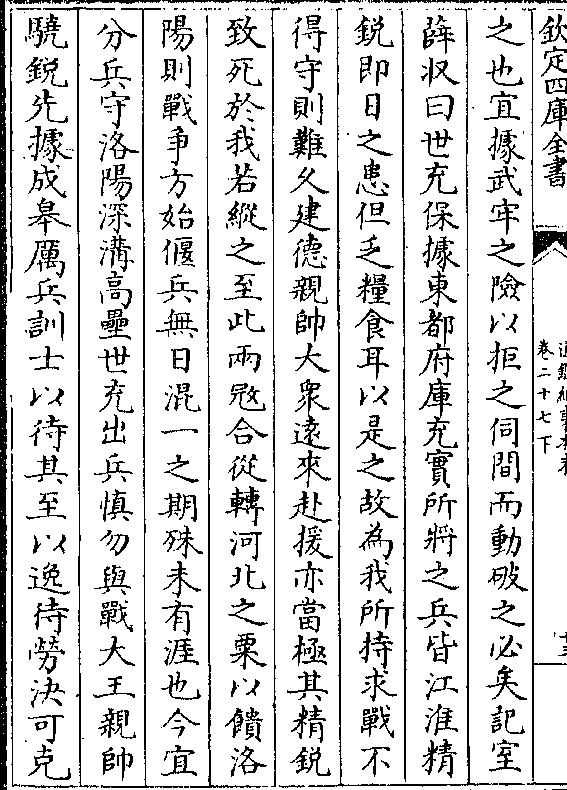 欽定四庫全書
卷二十七下
之也宜據武牢之險以拒之伺間而動破之必矣記室
薛収曰世充保據東都府庫充實所將之兵皆江淮精
鋭即日之患但乏糧食耳以是之故為我所持求戰不
得守則難久建德親帥大衆逺來赴援亦當極其精鋭
致死於我若縱之至此兩㓂合從轉河北之粟以饋洛
陽則戰争方始偃兵無日混一之期殊未有涯也今宜
分兵守洛陽深溝高壘世充出兵慎勿與戰大王親帥
驍鋭先據成皋厲兵訓士以待其至以逸待勞决可克